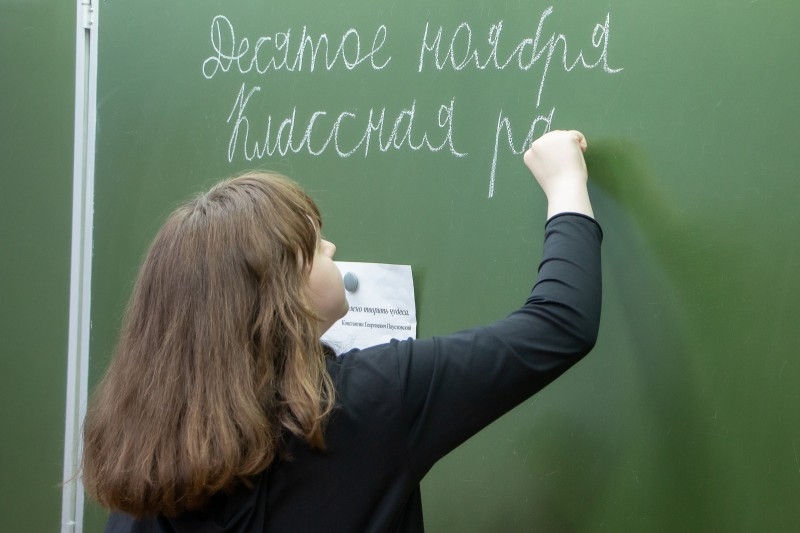 Десятое ноября
Классная ра
жно творить чудеса.
Константин Георгиевич Паустовский